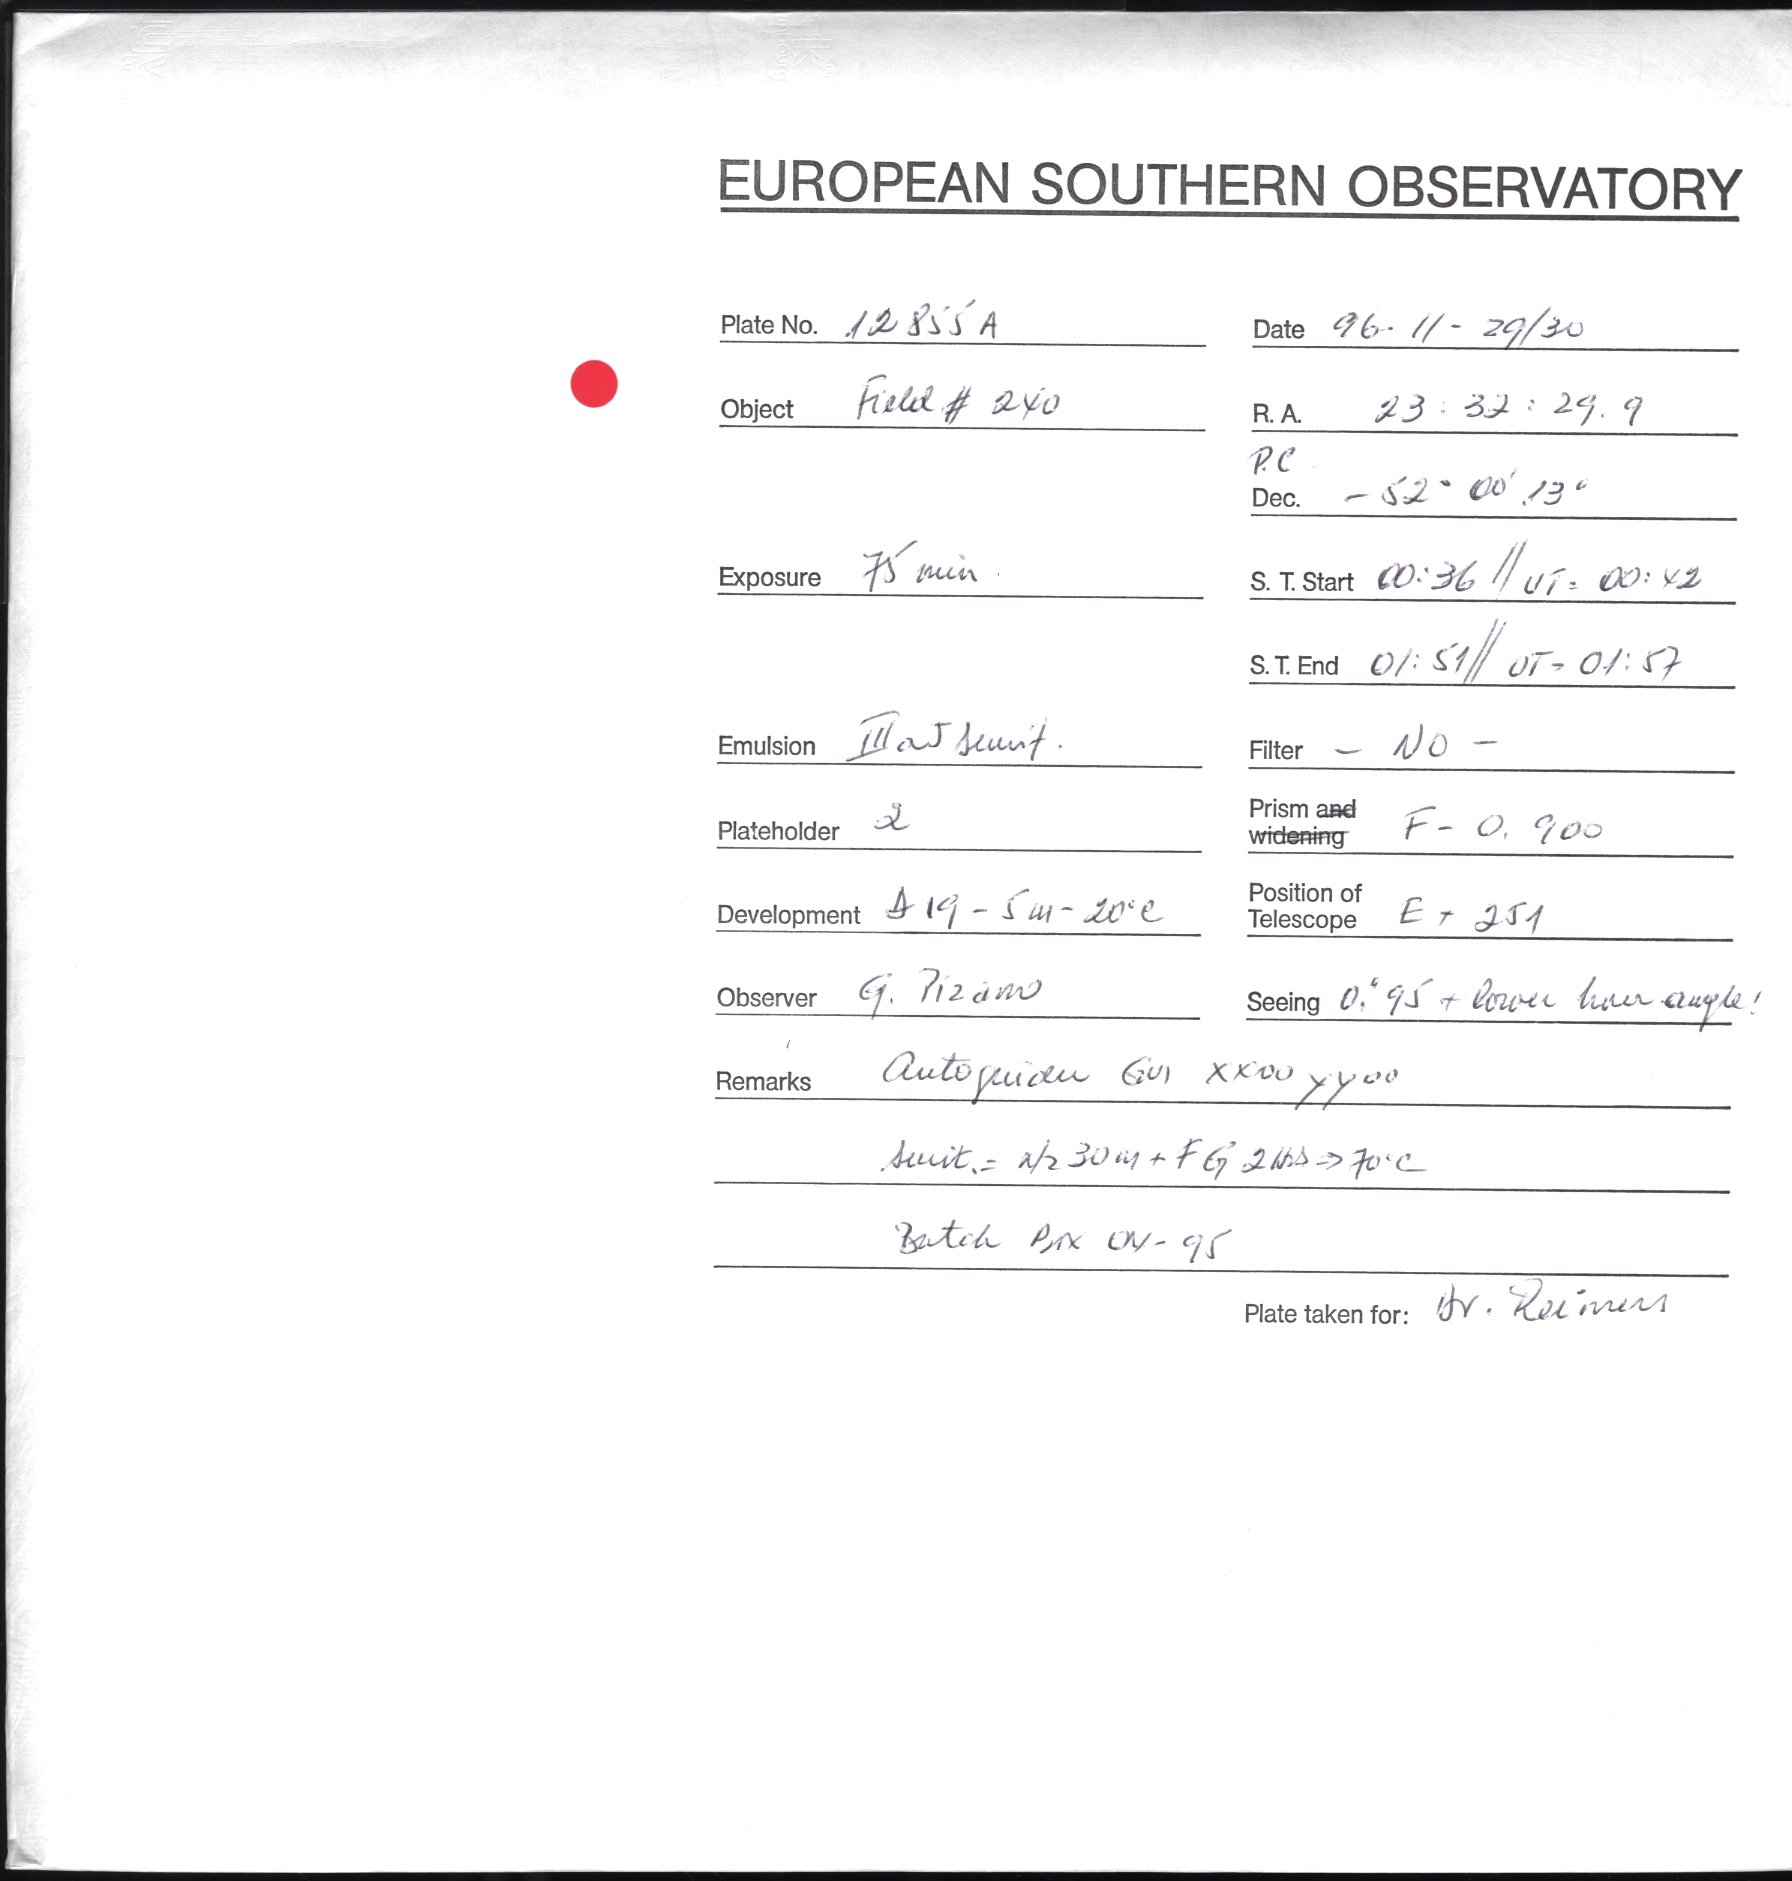 EUROPEAN SOUTHERN OBSERVATORY
Plate No. 12855A
Date 96-11-29/30
Object Field # 240
R. A. 23:32:29.9
P.C
Dec. -52° 00' 13"
Exposure 75 min.
S. T. Start 00:36 // UT= 00:42
S. T. End 01:51 // UT= 01:57
Emulsion IIIaJ sensit.
Filter - NO -
Plateholder 2
Prism and widening F- 0.900
Development D19-5m-20°C
Position of Telescope E + 251
Observer G. Pizarro
Seeing 0."95 + lower hour angle!
Remarks Autoguider xx00 yy00
sensit.= N2 30m + FG 2 hrs => 70°C
Batch Box 04-95
Plate taken for: Dr. Reimers